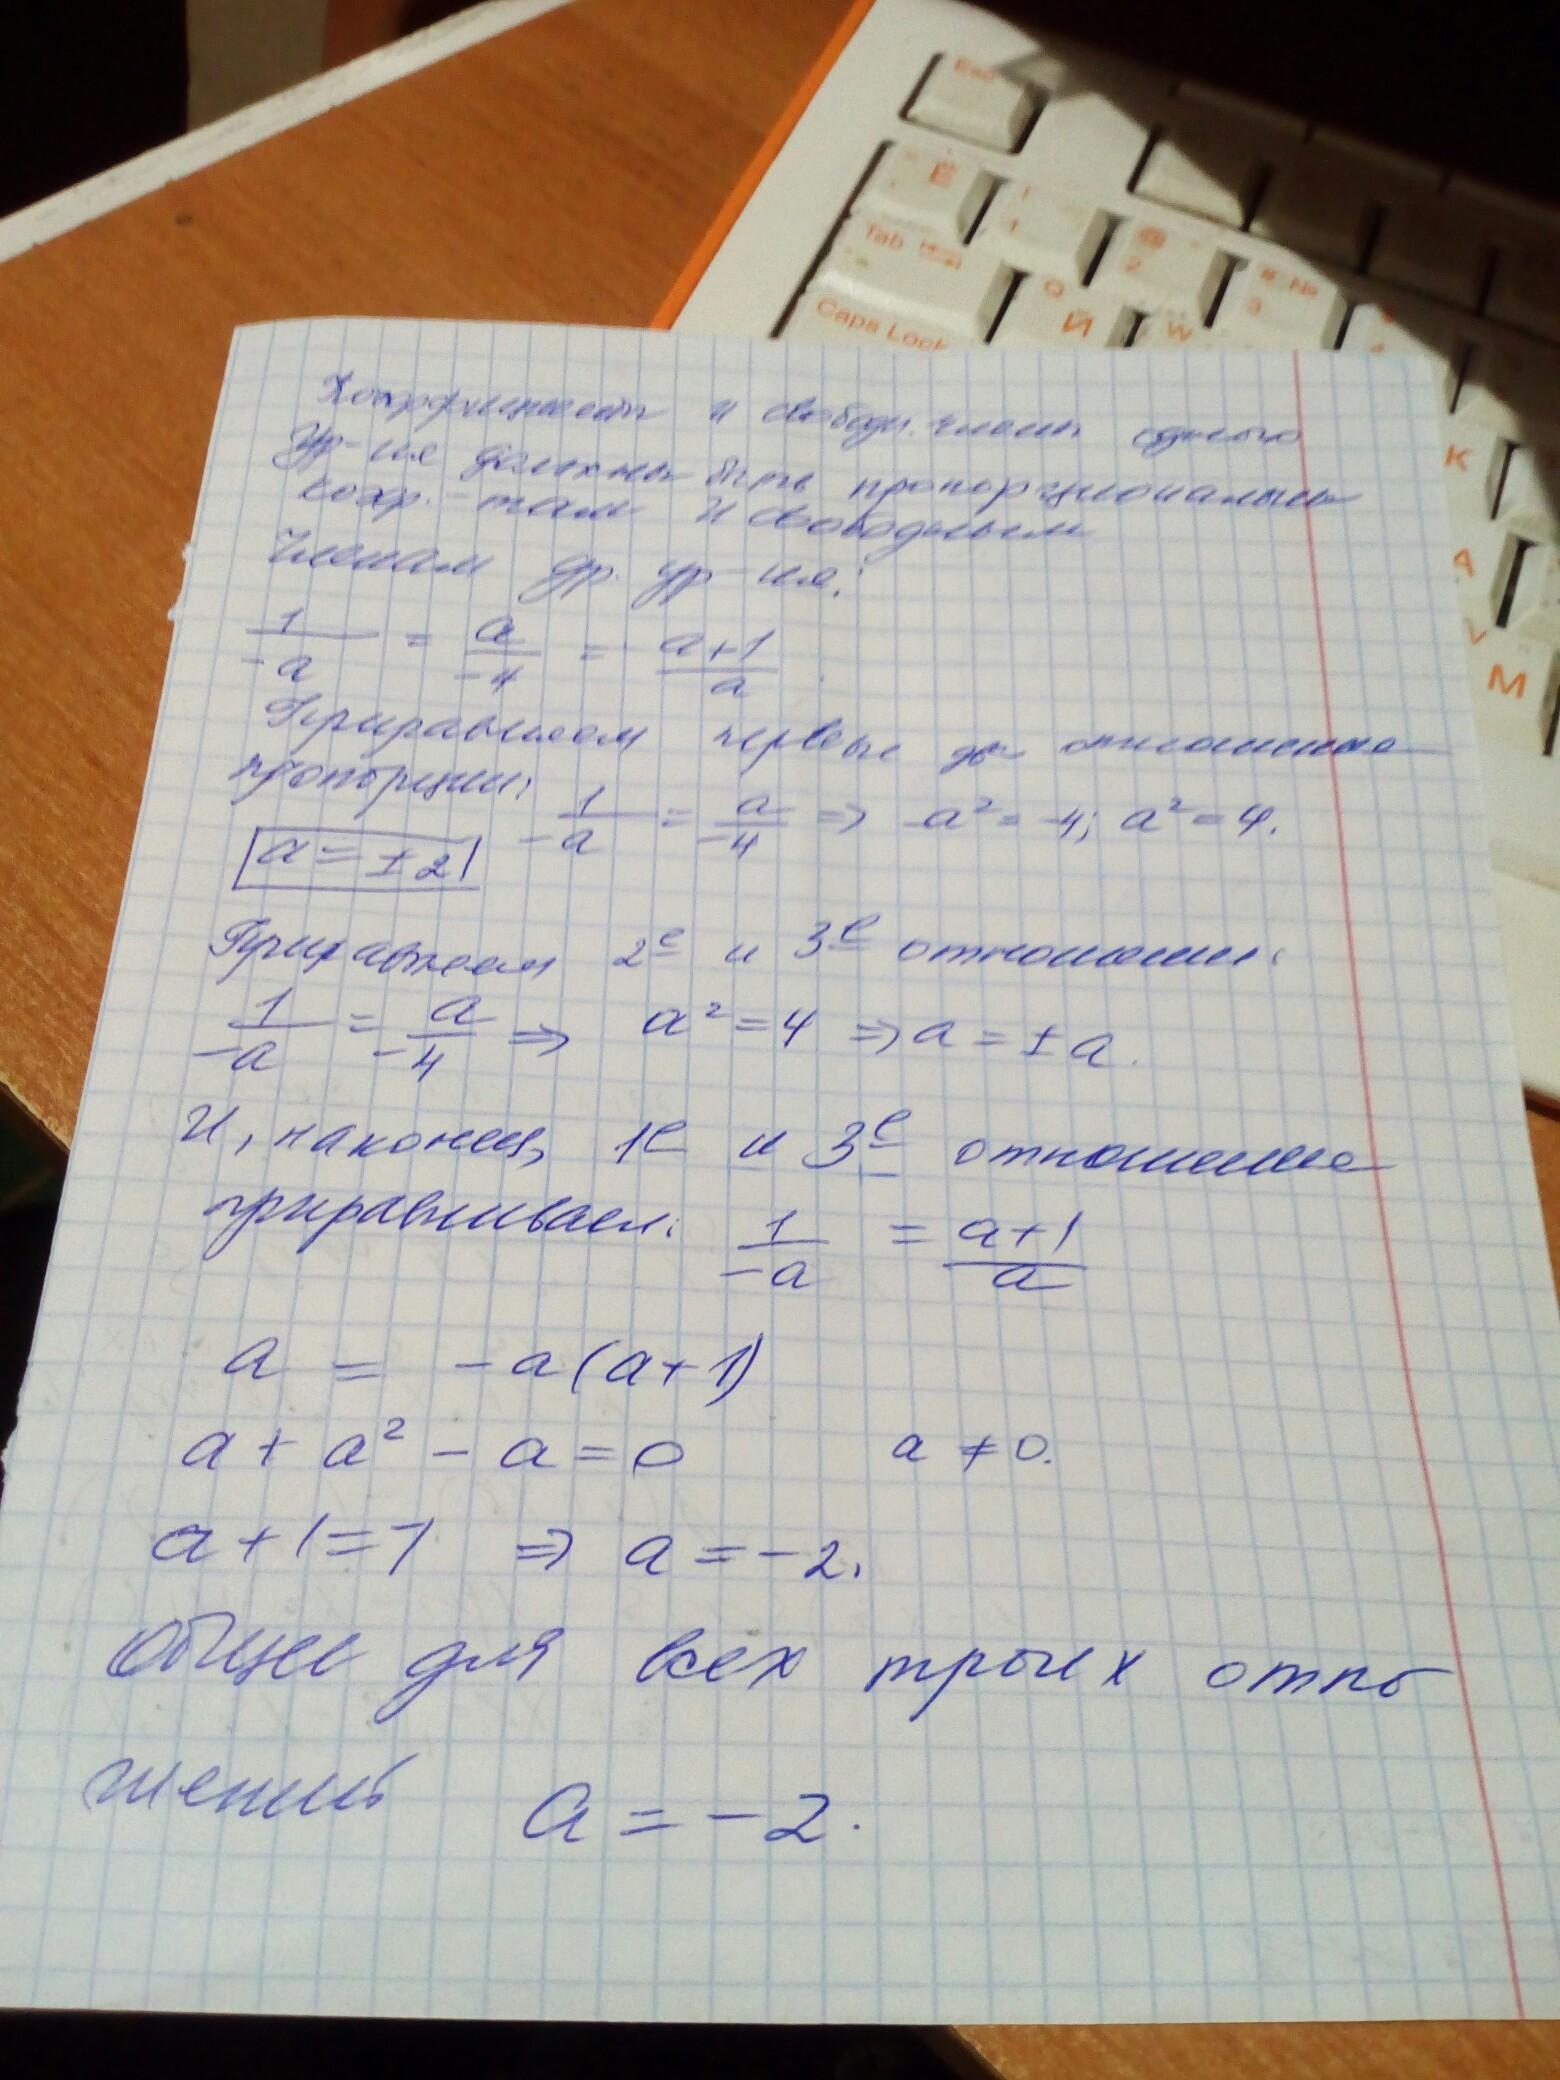 Esc
Ё
!
1
@
2
# №
3
Tab
Q
Й
W
Caps Lock
К
А
V
М
Коэффициенты и свободн. члены одного
Ур-ия должны быть пропорциональны
коэф.-там и свободным
членам др. ур-ия:
1/-a = a/-4 = a+1/a
Приравняем первые два отношения
пропорции: 1/-a = a/-4 => -a² = -4; a² = 4.
a = ±2
Приравняем 2е и 3е отношения:
1/-a = a/-4 => a² = 4 => a = ±a.
И, наконец, 1е и 3е отношение
приравниваем: 1/-a = a+1/a
a = -a(a+1)
a + a² - a = 0 a ≠ 0.
a + 1 = 7 => a = -2.
Общее для всех троих отно
шений a = -2.